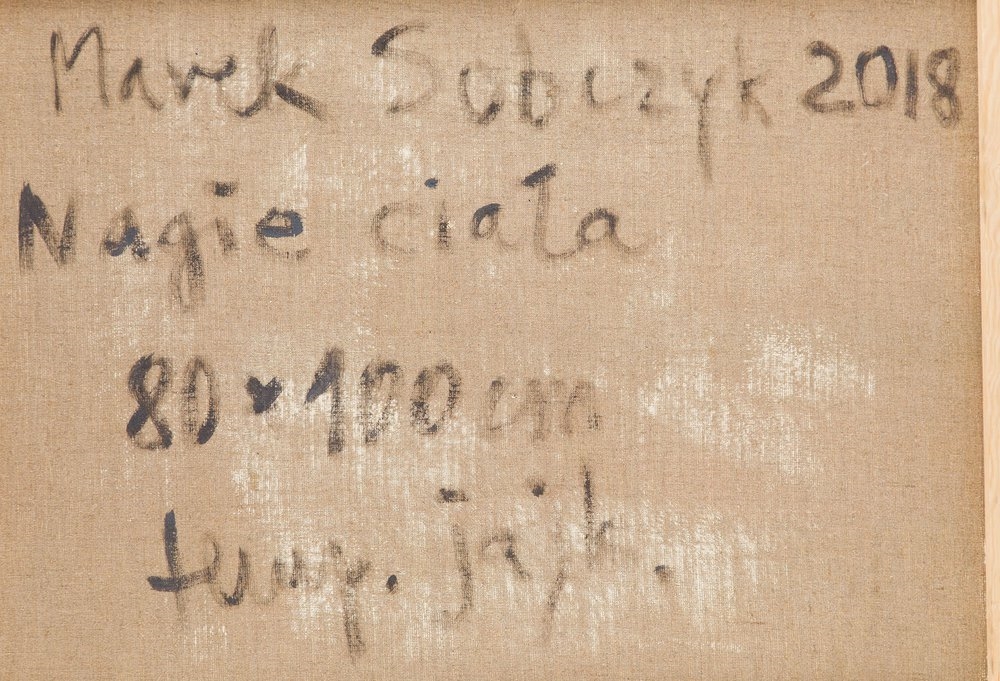 Marek Sobczyk 2018
Nagie ciała
80 x 100 cm.
temp. jajk.